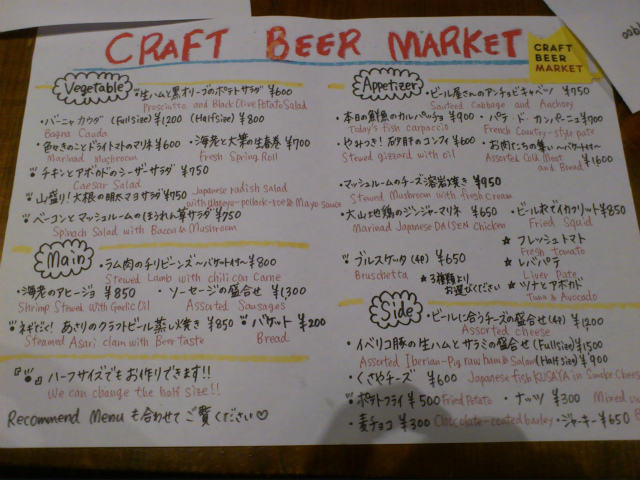 CRAFT BEER MARKET
CRAFT
BEER
MARKET
Vegetable
・生ハムと黒オリーブのポテトサラダ ¥600
Prosciutto and Black Olive Potato Salad
・バーニャカウダ (Fullsize) ¥1200 (Halfsize) ¥800
Bagna Cauda
・色々きのことドライトマトのマリネ ¥600
Marinad Mushroom
・海老と大葉の生春巻 ¥700
Fresh Spring Roll
・チキンとアボカドのシーザーサラダ ¥750
Caesar Salad
・山盛り!大根の明太マヨサラダ ¥750
Japanese radish Salad
with Alaska-pollack-roe & Mayo sauce
・ベーコンとマッシュルームのほうれん草サラダ ¥750
Spinach Salad with Bacon & Mushroom
Main
・ラム肉のチリビーンズ〜バケット付〜 ¥800
Stewed Lamb with chili con Carne
・海老のアヒージョ ¥850
Shrimp Stewed with Garlic Oil
・ソーセージの盛合せ ¥1,300
Assorted Sausages
あさりのクラフトビール蒸し焼き ¥850
Steamed Asari clam with Beer taste
・バゲット ¥200
Bread
ハーフサイズでもお作りできます!!
We can change the half size!!
Recommend Menuも合わせてご覧ください♡
Appetizer
・ビール屋さんのアンチョビキャベツ ¥750
Sauteed Cabbage and Anchovy
・本日の鮮魚のカルパッチョ ¥900
Today's fish carpaccio
・パテ・ド・カンパーニュ ¥700
French Country-style pate
・やみつき!砂肝のコンフィ ¥600
Stewed gizzard with oil
・お肉たちの集い〜バケット付〜 ¥1600
Assorted Cold Meat
and Bread
・マッシュルームのチーズ溶岩焼き ¥950
Stewed Mushroom with fresh Cream
・大山地鶏のジンジャーマリネ ¥650
Marinad Japanese DAISEN Chicken
・ビール衣でイカフリット ¥850
Fried Squid
・ブルスケッタ (4P) ¥650
Bruschetta
*3種類より
お選びください
★ フレッシュトマト
Fresh tomato
★ レバパテ
Liver Pate
★ ツナとアボカド
Tuna & Avocado
Side
・ビールに合うチーズの盛合せ(4P) ¥1200
Assorted cheese
・イベリコ豚の生ハムとサラミの盛合せ (Fullsize) ¥1500
Assorted Iberian-Pig raw ham & Salami (Halfsize) ¥900
・くさやチーズ ¥600 Japanese fish KUSAYA in Smoke Cheese
・ポテトフライ ¥500 Fried Potato ・ナッツ ¥300 Mixed
・麦チョコ ¥300 Chocolate-coated barley ・ジャーキー ¥650